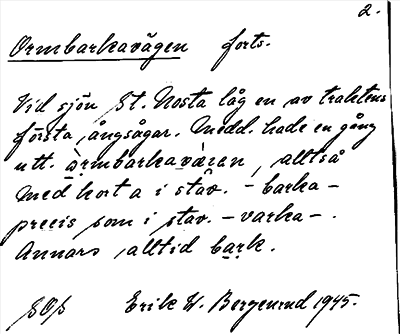 2.
Ormbarkavägen forts.
Vid sjön St. Nosta låg en av traktens
första ångsågar. Medd. hade en gång
utt. ärmbarkaväran, alltså
med kort a i stav. - barka -
precis som i stav. - varka -.
Annars alltid bark.
Erik W. Bergenrud 1945.